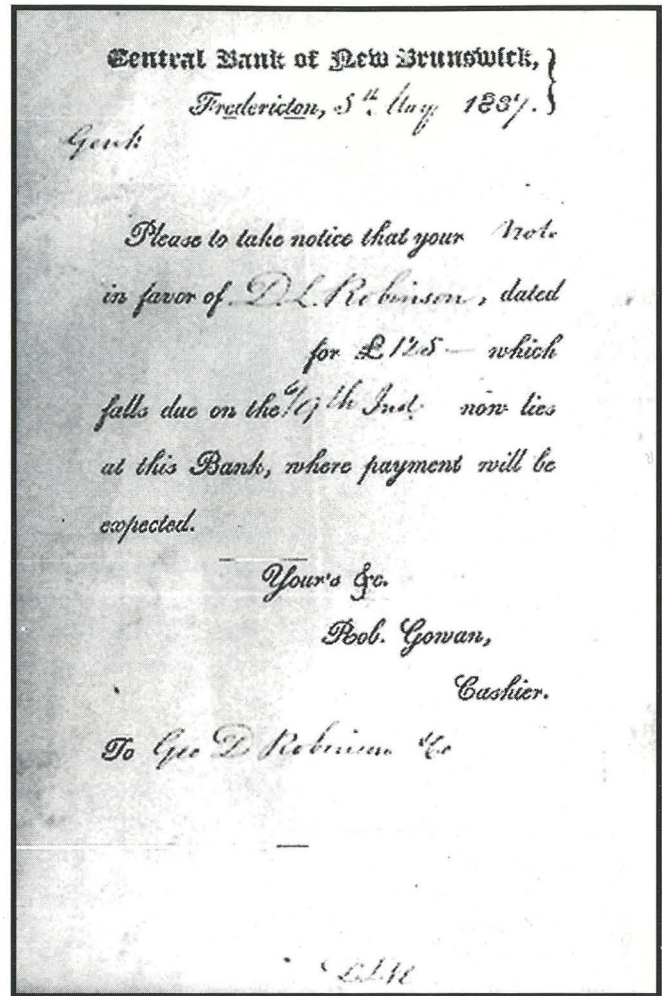 Central Bank of New Brunswick,
Fredericton, 5th May 1837.
Gent
Please to take notice that your Note
in favor of D. L. Robinson, dated
for £125 — which
falls due on the 6/9th Inst. now lies
at this Bank, where payment will be
expected.
Your's &c.
Rob. Gowan,
Cashier.
To Geo D Robinson &Co